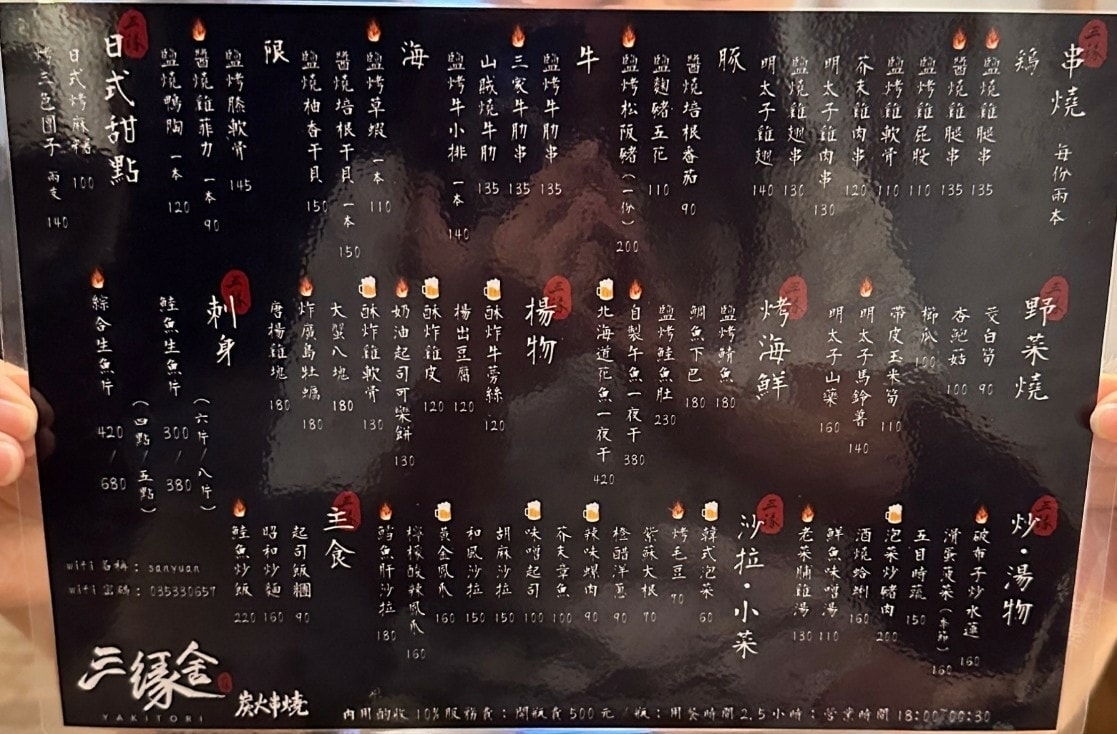 串燒 每份兩本
鶏
鹽燒雞腿串 135
醬燒雞腿串 135
鹽烤雞屁股 110
鹽烤雞軟骨 110
芥末雞肉串 120
明太子雞肉串 130
鹽燒雞翅串 130
明太子雞翅 140
豚
醬燒培根番茄 90
鹽麴豬五花 110
鹽烤松阪豬(一份) 200
牛
鹽烤牛肋串 135
三家牛肋串 135
山賊燒牛肋 135
鹽烤牛小排 一本 140
海
鹽烤草蝦 一本 110
醬燒培根干貝 一本 150
鹽燒柚香干貝 150
限
鹽烤膝軟骨 145
醬燒雞菲力 一本 90
鹽燒鴨胸 一本 120
三緣
日式甜點
日式烤麻糬 100
烤三色團子 兩支 140
野菜燒
茭白筍 90
杏鮑菇 100
櫛瓜 100
帶皮玉米筍 110
明太子馬鈴薯 140
明太子山藥 160
烤海鮮
鹽烤鯖魚 180
鯛魚下巴 180
鹽烤鮭魚肚 230
自製午魚一夜干 380
北海道花魚一夜干 420
揚物
酥炸牛蒡絲 120
揚出豆腐 120
酥炸雞皮 120
奶油起司可樂餅 130
酥炸雞軟骨 130
大蟹八塊 180
炸廣島牡蠣 180
唐揚雞塊 180
刺身
(六片/八片)
鮭魚生魚片 300/380
(四點/五點)
綜合生魚片 420/680
炒·湯物
破布子炒水蓮 160
滑蛋菠菜(季節) 160
五目時蔬 150
泡菜炒豬肉 200
酒燒蛤蜊 160
鮮魚味噌湯 110
老菜脯雞湯 130
沙拉·小菜
韓式泡菜 60
烤毛豆 70
紫蘇大根 90
橙醋洋蔥 90
辣味螺肉 90
芥末章魚 100
味噌起司 100
胡麻沙拉 150
和風沙拉 150
黃金鳳爪 160
檸檬酸辣鳳爪 160
鮟魚肝沙拉 180
主食
起司飯糰 90
昭和炒麵 160
鮭魚炒飯 220
wifi 名稱: sanyuan
wifi 密碼: 035330657
三緣舍
YAKITORI
炭火串燒
內用酌收 10%服務費;開瓶費500元/瓶;用餐時間2.5小時;營業時間18:00~00:30